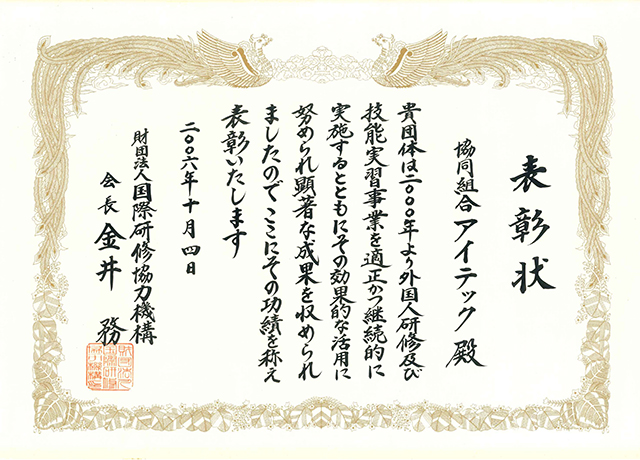 表彰状
協同組合 アイテック 殿
貴団体は二〇〇〇年より外国人研修及び
技能実習事業を適正かつ継続的に
実施するとともにその効果的な活用に
努められ顕著な成果を収められ
ましたのでここにその功績を称え
表彰いたします
二〇〇六年十月四日
財団法人 国際研修協力機構
会長 金井 務